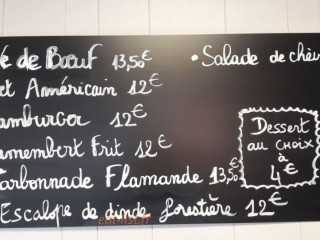 é de Bœuf 13,50€
et Américain 12€
amburger 12€
amembert Frit 12€
arbonnade Flamande 13,50€
Escalope de dinde forestière 12€
• Salade de chèv
Dessert
au CHOIX
à
4€